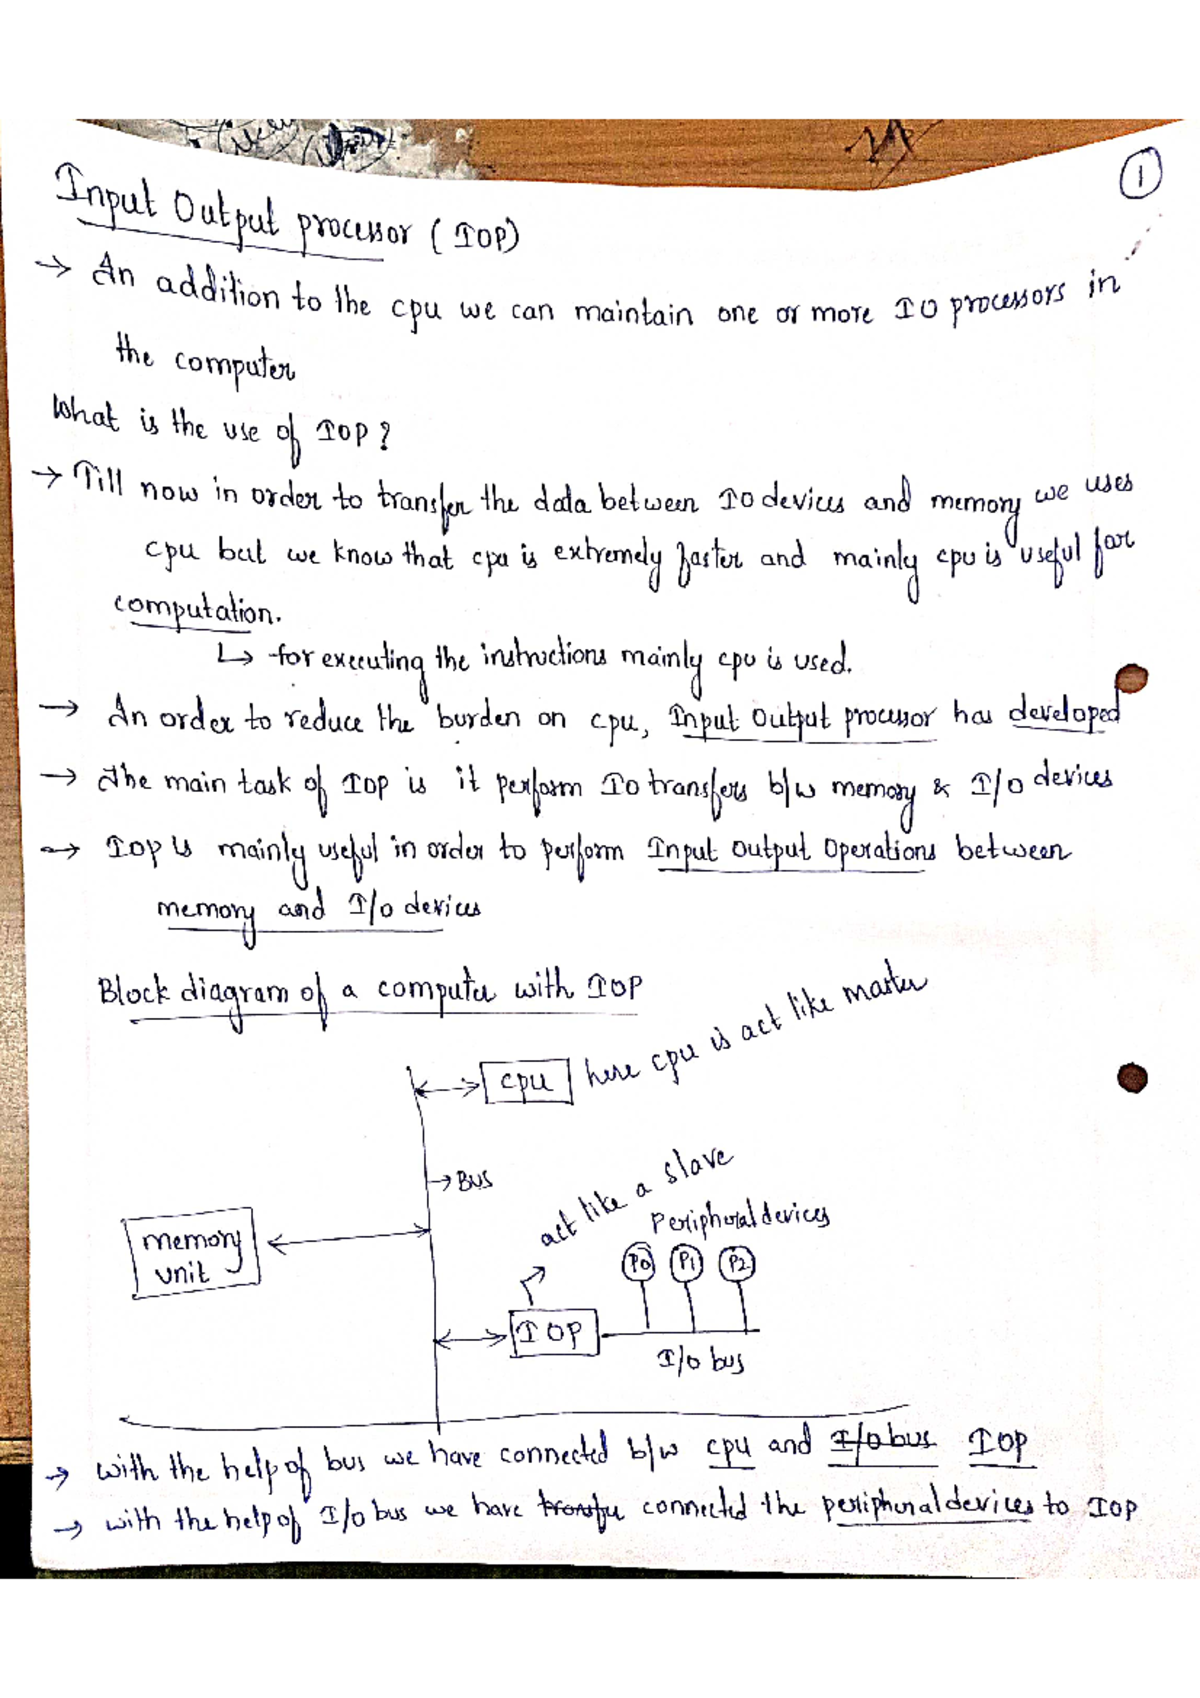 1
Input Output processor (IOP)
→ An addition to the cpu we can maintain one or more IO processors in
the computer
What is the use of IOP?
→ Till now in order to transfer the data between IO devices and memory we uses
cpu but we know that cpu is extremely faster and mainly cpu is useful for
computation.
↳ for executing the instructions mainly cpu is used.
→ An order to reduce the burden on cpu, Input Output processor has developed
→ The main task of IOP is it perform IO transfers b/w memory & I/O devices
→ IOP is mainly useful in order to perform Input Output Operations between
memory and I/O devices
Block diagram of a computer with IOP
cpu here cpu is act like master
→ BUS
act like a slave
Peripheral devices
memory
unit
P0 P1 P2
IOP
I/O bus
→ with the help of bus we have connected b/w cpu and I/O bus IOP
→ with the help of I/O bus we have transfer connected the peripheral devices to IOP